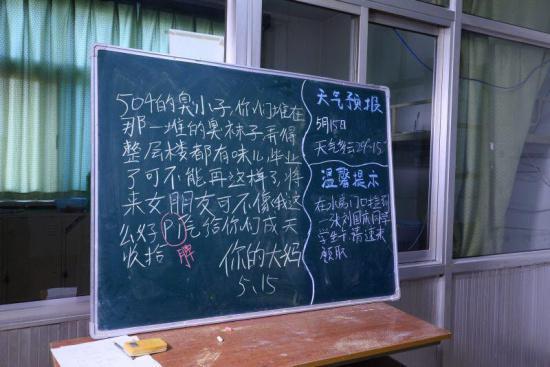 504的臭小子,你们堆在
那一堆的臭袜子弄得
整层楼都有味儿,毕业
了可不能再这样了,将
来女朋友可不像我这
么好Pi气给你们成天
收拾
脾
你的大妈
5、15
天气预报
5月15日
天气多云24°~15°
温馨提示
在水房门口捡到
张刘国有同学
学生卡,请速来
领取